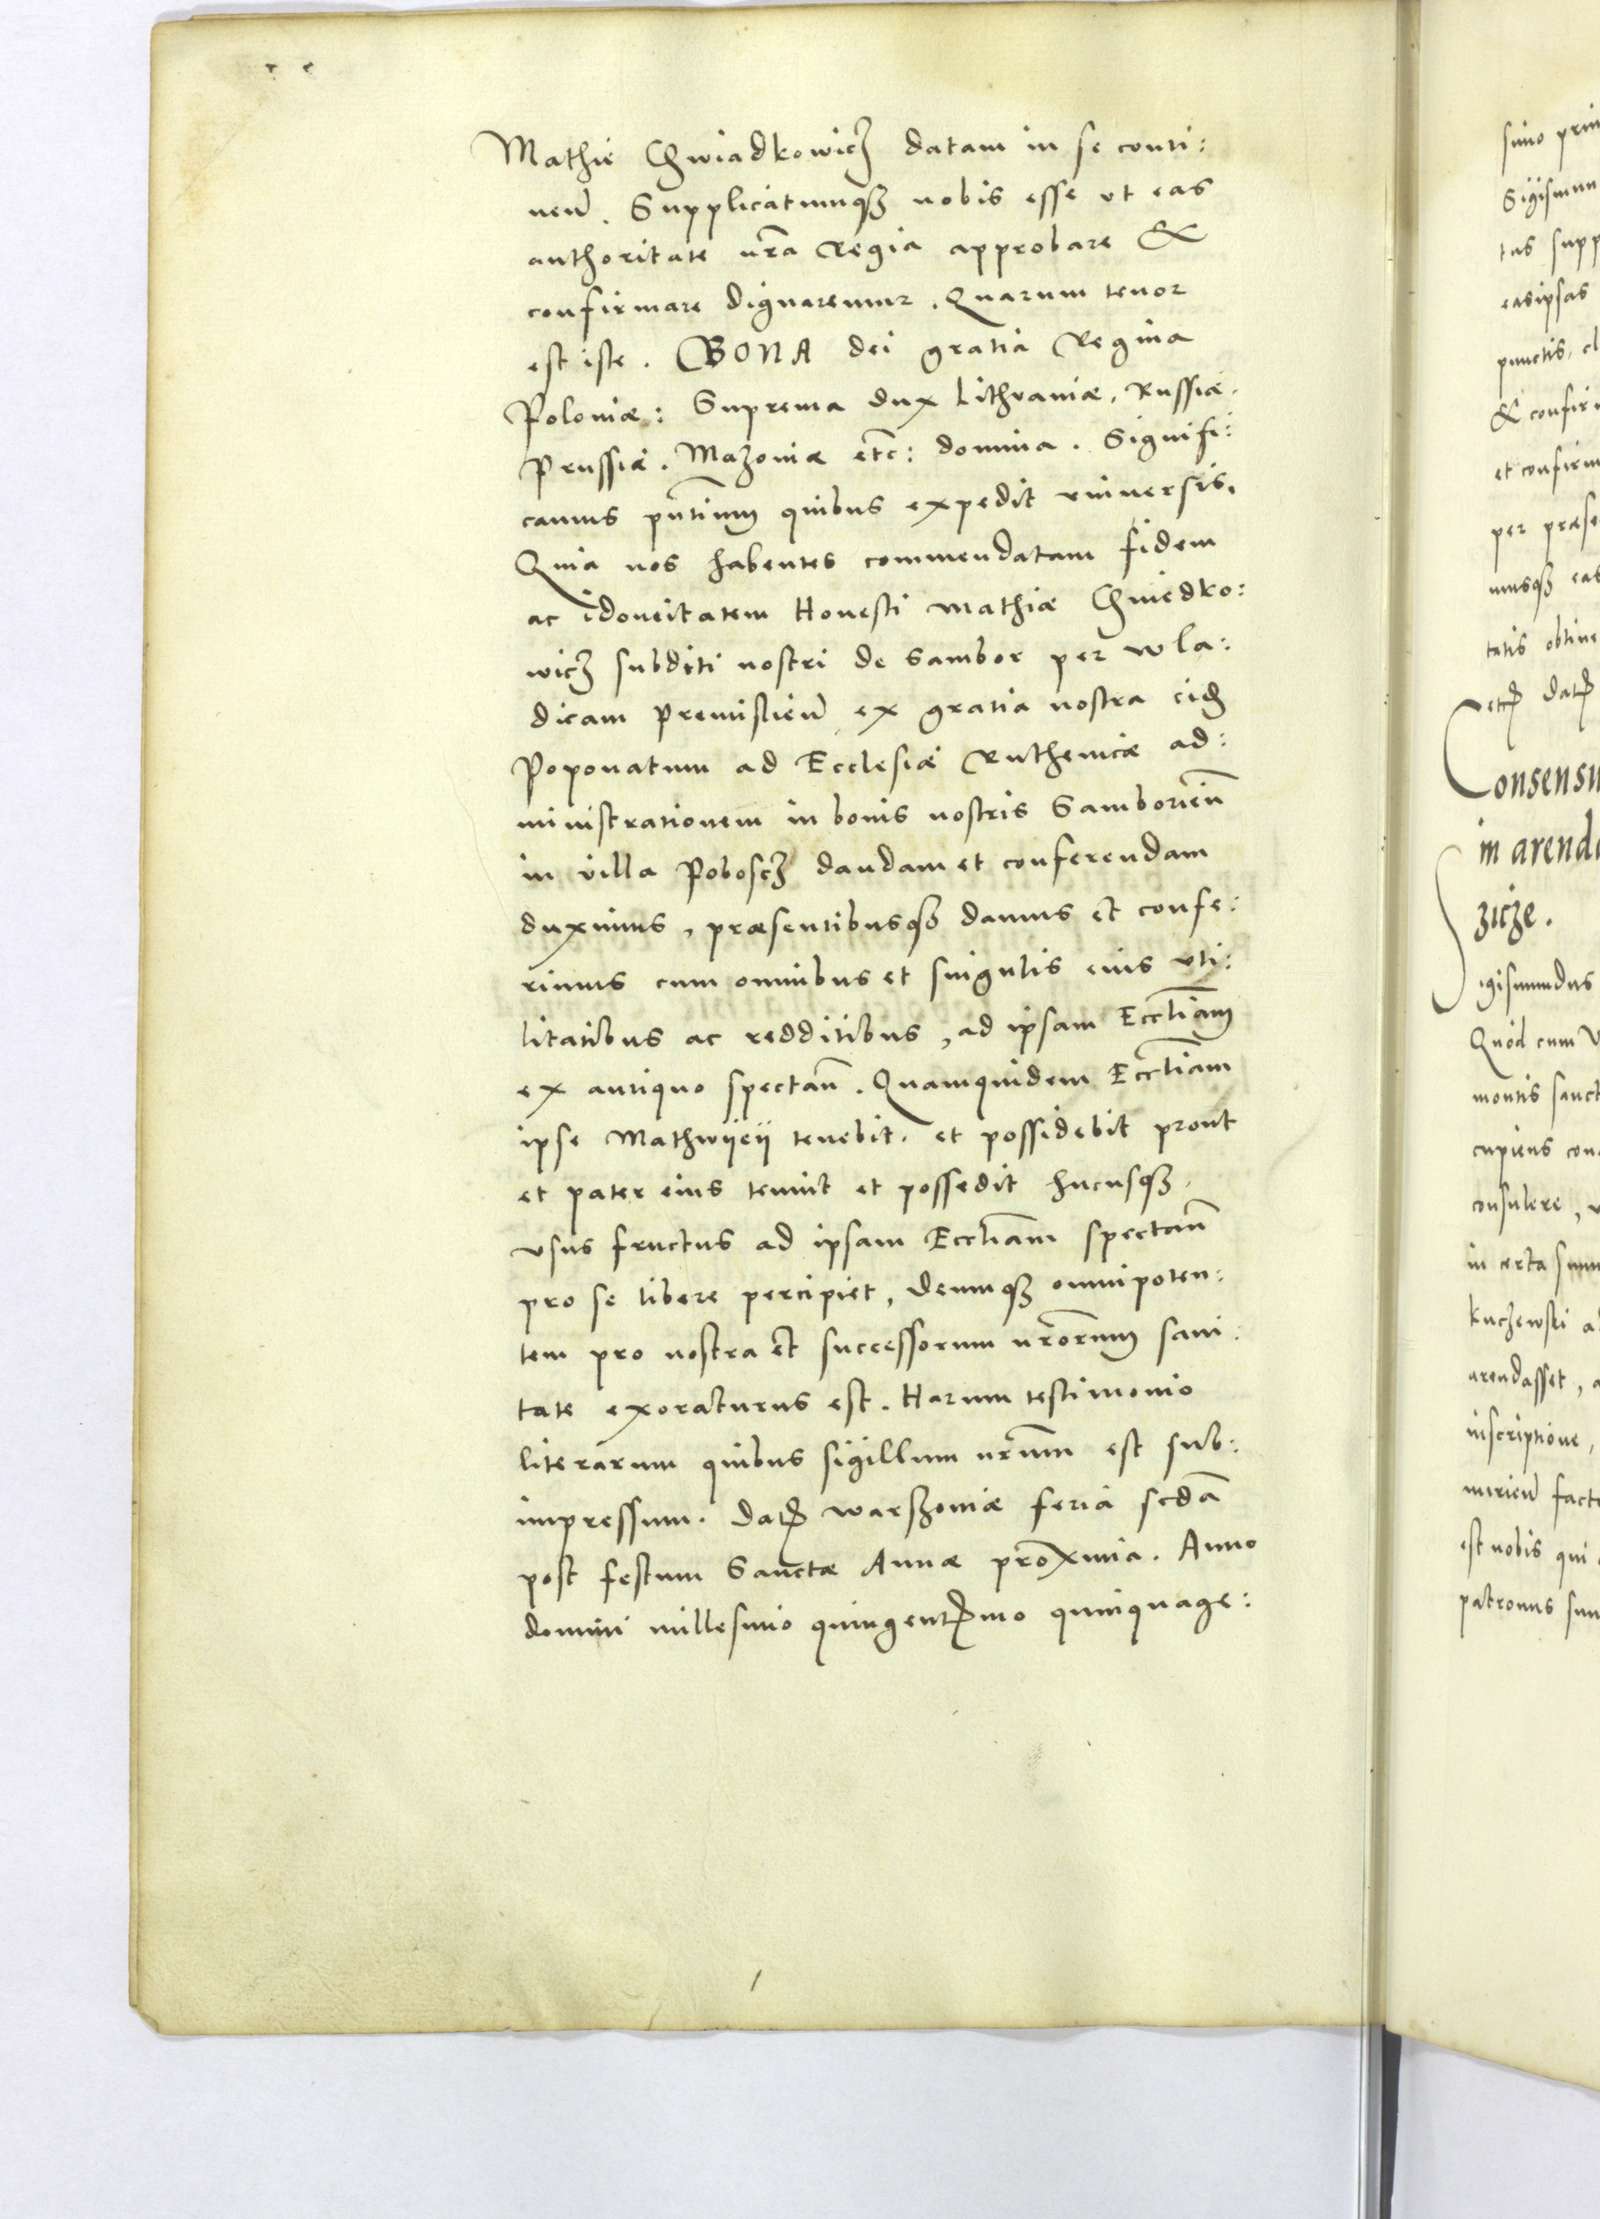 Mathie Chwiadkowicz datam in se conti:
nen̄. Supplicatumqȝ nobis esse vt eas
authoritate nr̄a Regia approbare &
confirmare dignaremur. Quarum tenor
est iste. BONA dei gratia Regina
Poloniæ: Suprema dux Lithvaniæ, Russiæ.
Prussiæ. Mazoniæ etc̄: domina. Signifi:
camus pn̄tium quibus expedit vniuersis.
Quia nos habentes commendatam fidem
ac idoneitatem Honesti Mathiæ Chwiedko:
wicz subditi nostri de Sambor per Wla:
dicam Premislien̄ ex gratia nostra eidē
Poponatum ad Ecclesiæ Ruthenicæ ad:
ministrationem in bonis nostris Samborien̄
in villa Poboscz dandam et conferendam
duximus, præsentibusqȝ damus et confe:
rimus cum omnibus et singulis eius vti:
litatibus ac redditibus, ad ipsam Eccl̄iam
ex antiquo spectan̄. Quamquidem Eccl̄iam
ipse Mathwijeij tenebit. et possidebit prout
et pater eius tenuit et possedit hucusqȝ.
vsus fructus ad ipsam Eccl̄iam spectan̄
pro se libere percipiet, deumqȝ omnipoten:
tem pro nostra et successorum nr̄orum sani:
tate exoraturus est. Harum testimonio
literarum quibus sigillum nr̄um est sub:
impressum. Datꝭ Warszoniæ feria scd̄a
post festum Sanctæ Annæ proxima. Anno
domini millesimo quingentꝭmo quinquage:
simo prim
Sigismun
tas supp
easipsas
punctis, cl
& confir
et confirm
per præse
musqȝ eas
tatis obtine
etcꝭ datꝭ
Consensu
in arenda
zicze.
Sigismundus
Quod cum V
montis sanct
cupiens con
consulere, v
in certa sum
Kuczewski a
arendasset, a
inscriptione,
mirien̄ fact
est nobis qui
patronus sum